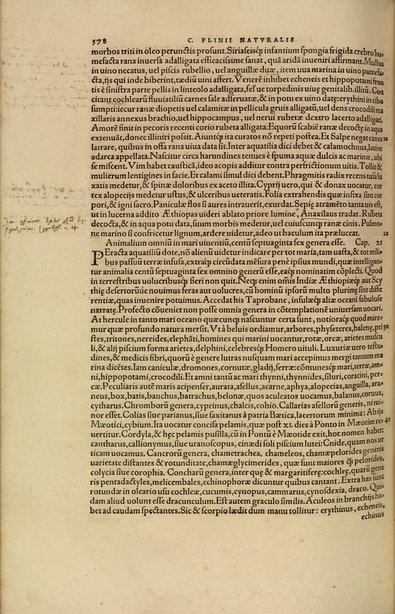 578 C. PLINII NATVRALIS
morbos triti in oleo perunctis prosunt. Siriasesq; infantium spongia frigida crebro hu-
mefacta rana inversa adalligata efficacissime sanat, quā aridā inveniri affirmant. Mullus
in uino necatus, uel piscis rubellio, uel anguillæ duæ, item uua marina in uino putrefa-
cta, ijs qui inde biberint, tædiū uini affert. Venerē inhibet echeneis et hippopotami fron-
tis è sinistra parte pellis in linteolo adalligata, fel ue torpedinis uiuę genitalib. illitū. Con
citant cochlearū fluuiatiliū carnes sale adseruatæ, & in potu ex uino datæ: erythini in cibo
sumpti: iecur ranæ diopetis uel calamitæ in pellicula gruis alligatū, uel dens crocodili ma
xillaris annexus brachio, uel hippocampus, uel nerui rubetæ dextro lacerto adalligati.
Amorē finit in pecoris recenti corio rubeta alligata. Equorū scabiē ranæ decoctæ in aqua
extenuant, donec illiniri possit. Aiuntq; ita curatos nō repeti postea. Et Salpe negat canes
latrare, quibus in offa rana uiua data sit. Inter aquatilia dici debet & calamochnus, latine
adarca appellata. Nascitur circa harundines tenues è spuma aquæ dulcis ac marinæ, ubi
se miscent. Vim habet causticā, ideo acopis additur contra perfrictionum uitia. Tollit &
mulierum lentigines in facie. Et calami simul dici debent. Phragmitis radix recens tusa lu
xatis medetur, & spinæ doloribus ex aceto illita. Cyprij uero, qui & donax uocatur, cor
tex alopecijs medetur ustus, & ulceribus ueteratis. Folia extrahendis quæ infixa sint cor
pori, & igni sacro. Paniculæ flos si aures intrauit, exurdat. Sepiæ atramēto tanta uis est,
ut in lucerna addito Æthiopas uideri ablato priore lumine, Anaxilaus tradat. Rubeta
decocta, & in aqua potu data, suum morbis medetur, uel cuiuscunq; ranæ cinis. Pulmo-
ne marino si confricetur lignum, ardere uidetur, adeo ut baculum ita præluceat.
Animalium omniū in mari uiuentiū, centū septuaginta sex genera esse. Cap. XI
PEracta aquatiliū dote, nō alienū uidetur indicare per tot maria, tam uasta, & tot mil
bus passuū terræ infusa, extraq; circūdata mēsura penè ipsius mundi, quæ intelligan
tur animalia centū septuaginta sex omnino generū esse, eaq; nominatim cōplecti. Quod
in terrestribus uolucribusq; fieri non quit. Neq; enim omnis Indiæ Æthiopiæq; aut Scy
thiæ desertorūe nouimus feras aut uolucres, cū hominū ipsorū multo plurimę sint diffe
rentiæ, quas inuenire potuimus. Accedat his Taprobane, insulæq; aliæ oceani fabulose
narratæ. Profectò cōueniet non posse omnia genera in cōtemplationē uniuersam uocari.
At hercule in tanto mari oceano quæcunq; nascuntur certa sunt, notioraq; quod mire-
mur quæ profundo natura mersit. Vt à beluis ordiamur, arbores, physeteres, balenę, pri
stes, tritones, nereides, elephāti, homines qui marini uocantur, rotæ, orcæ, arietes muscu
li, & alij piscium forma arietes, delphini, celebresq; Homero uituli. Luxuriæ uero testu-
dines, & medicis fibri, quorū è genere lutras nusquam mari accepimus mergi tantum ma
rina dicētes. Iam caniculæ, dromones, cornutæ, gladij, serræ: cōmunesq; mari, terræ, am-
ni, hippopotami, crocodili. Et amni tantū ac mari thynni, thynnides, siluri, coracini, per-
cæ. Peculiares autē maris acipenser, aurata, asellus, acarne, aphya, alopecias, anguilla, ara-
neus, box, batis, banchus, batrachus, belonæ, quos aculeatos uocamus, balanus, coruus,
cytharus. Chromborū generis, cyprinus, chalcis, cobio. Callarias asellorū generis, ni mi-
nor esset. Colias siue parianus, siue saxitanus à patria Bætica, lacertorum minima: Abijs
Mæotici, cybium. Ita uocatur concisa pelamis, quæ post XL dies à Ponto in Mæotim re-
uertitur. Cordyla, & hęc pelamis pusilla, cū in Pontū è Mæotide exit, hoc nomen habet:
cantharus, callionymus, siue uranoscopus, cinædi soli piscium lutei: Cnide, quam nos ur
ticam uocamus. Cancrorū genera, chametrachea, chameleos, chamæpelorides generis
uarietate distantes & rotunditate, chamæglycimerides, quæ sunt maiores q̃ pelorides,
colycia siue corophia. Concharū genera, inter quæ & margaritiferę: cochleę, quarū gene
ris pentadactyles, melicembales, echinophoræ dicuntur quibus cantant. Extra has sunt
rotundæ in oleario usu cochleæ, cucumis, cynopus, cammarus, cynosdexia, draco. Qui-
dam aliud uolunt esse dracunculum. Est autem graculo similis. Aculeos in branchijs ha-
bet ad caudam spectantes. Sic & scorpio lædit dum manu tollitur: erythinus, echeneis,
echinus